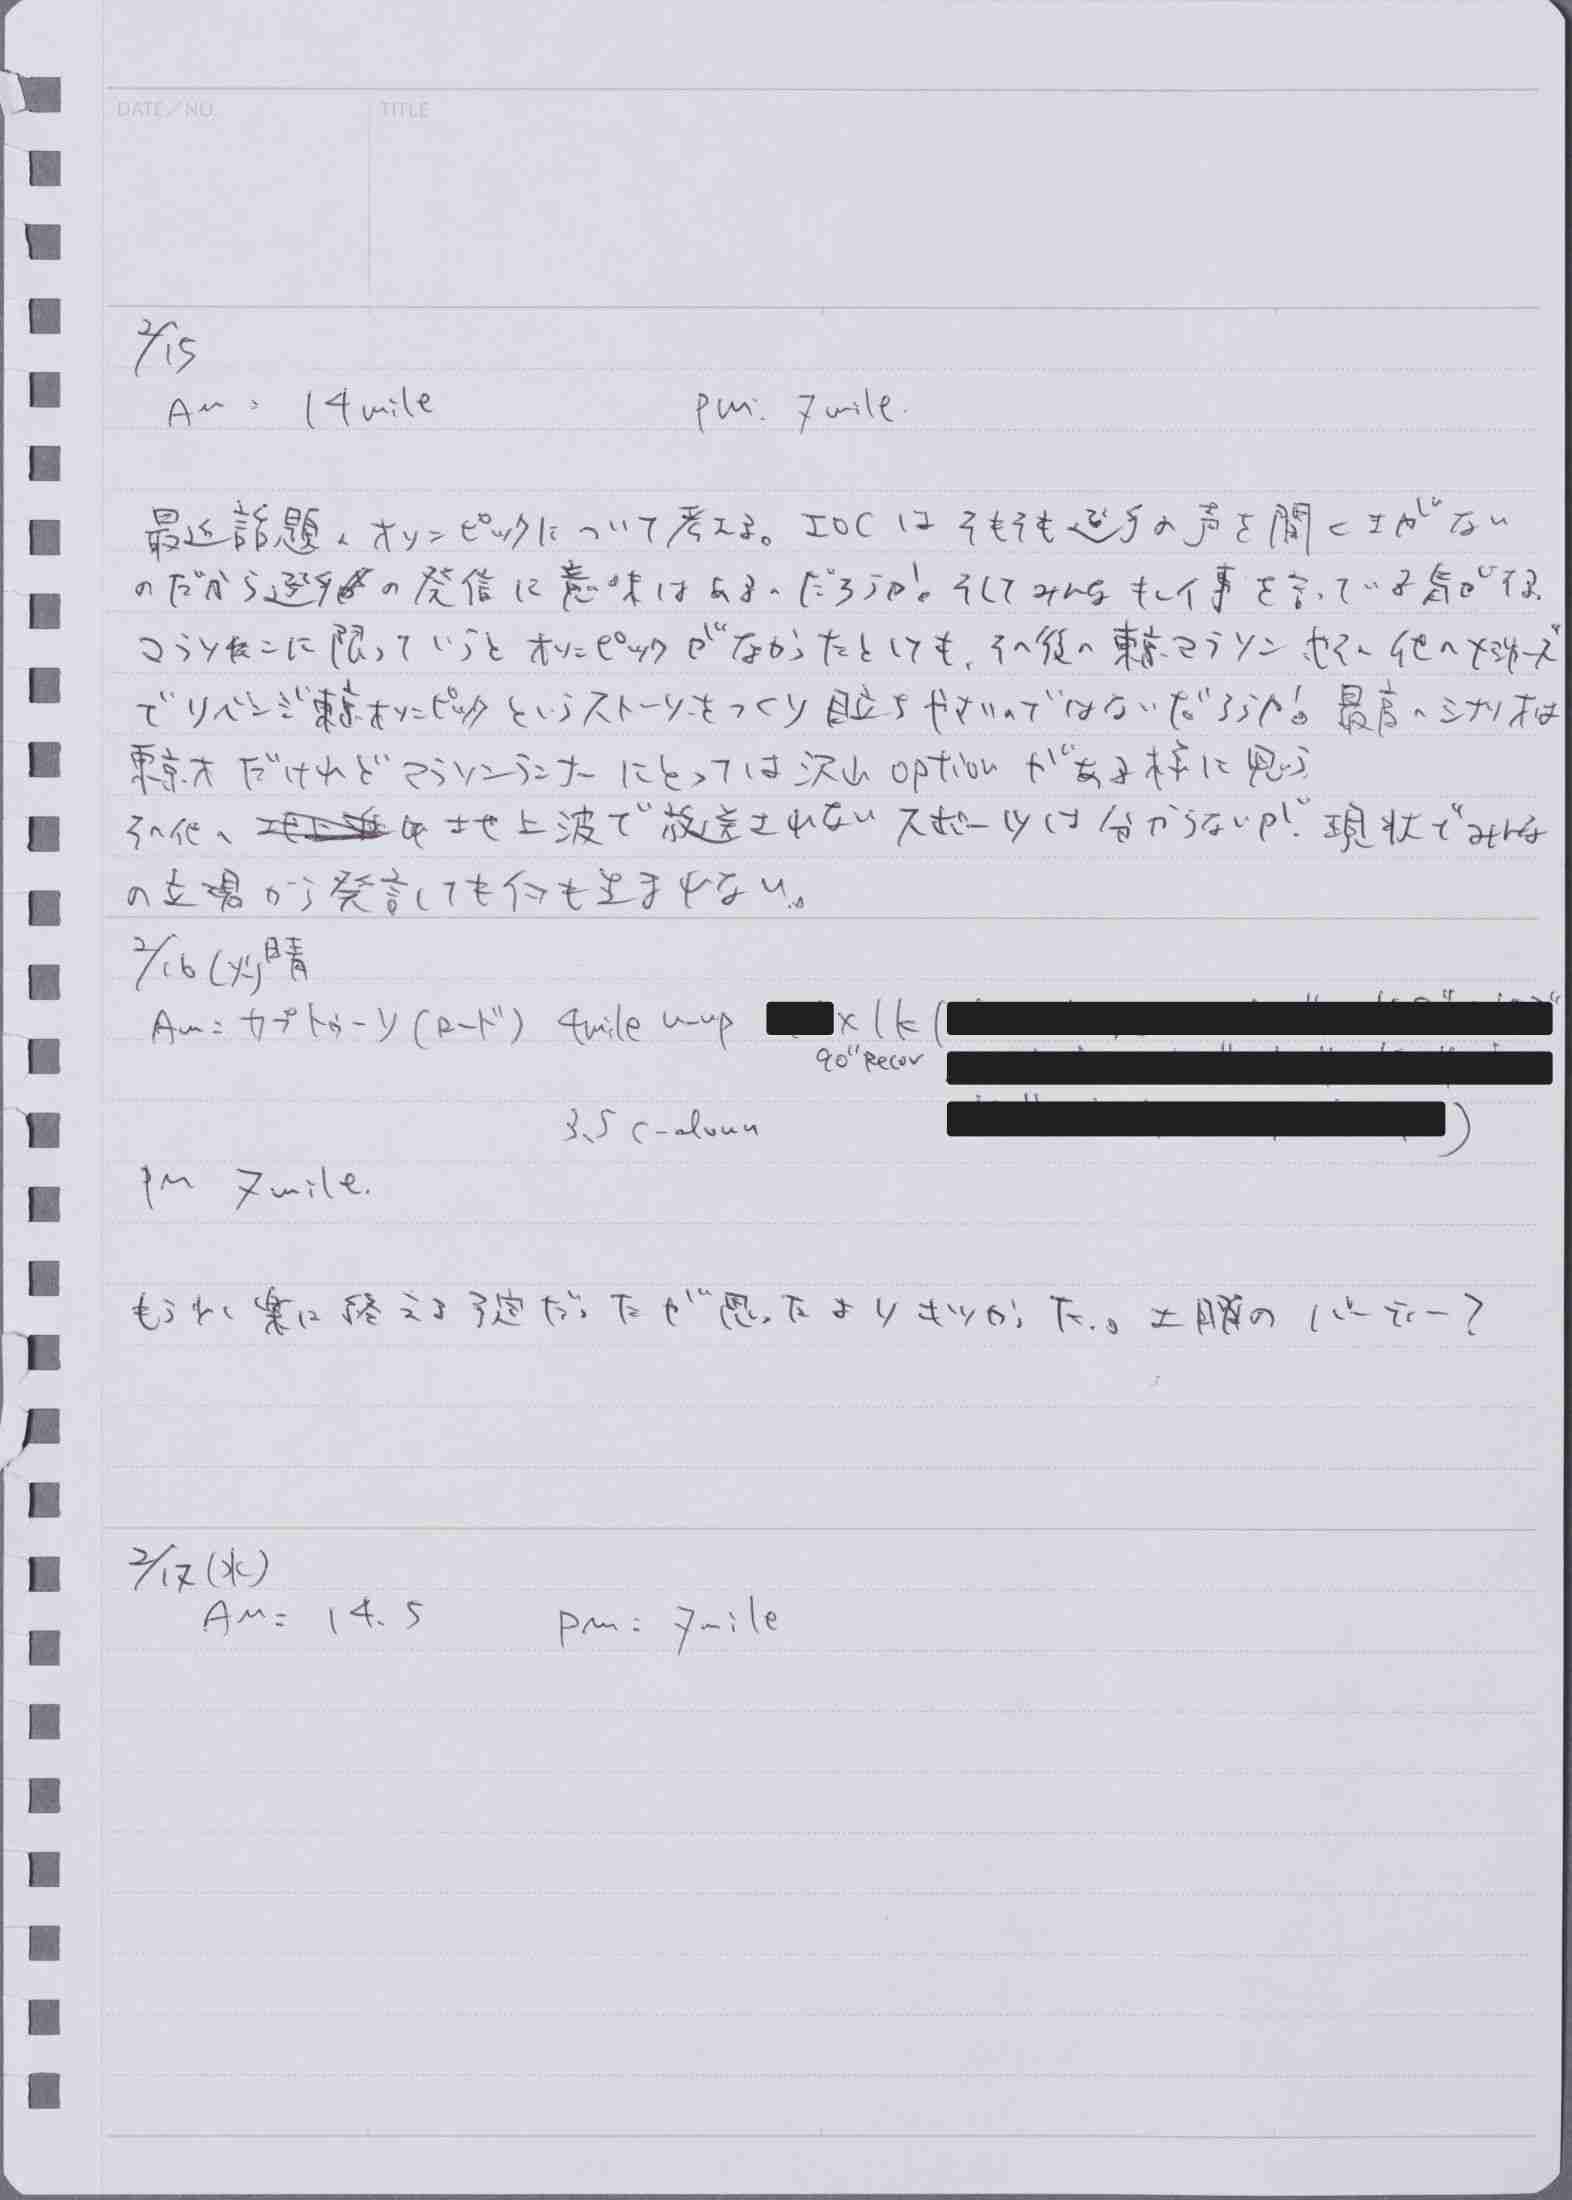 DATE/NO.
TITLE
2/15
Am: 14mile pm: 7mile.
最近話題のオリンピックについて考える。IOCはそもそも選手の声を聞く工がない
のだから選手の発信に意味はあるのだろうか!そしてみんな
マラソンに限っていうとオリンピックがなかったとしても、その後の東京マラソンやその他のメジャーズ
でリベンジ東京オリンピックというストーリーをつくり目立ちやすいのではないだろうか!最高のシナリオは
東京オだけれどマラソンランナーにとっては沢山optionがある様に思う
その他の地上波で放送されないスポーツは分からないが、現状でみんな
の立場から発言しても何も生まれない。
2/16(火)晴
Am=カプトゥーリ(ロード) 4mile w-up x1k(
90"Recov
3.5 c-down )
pm 7mile.
もう少し楽に終える予定だったが思ったよりキツかった。土曜のパーティー?
2/17(水)
Am= 14.5 pm= 7mile